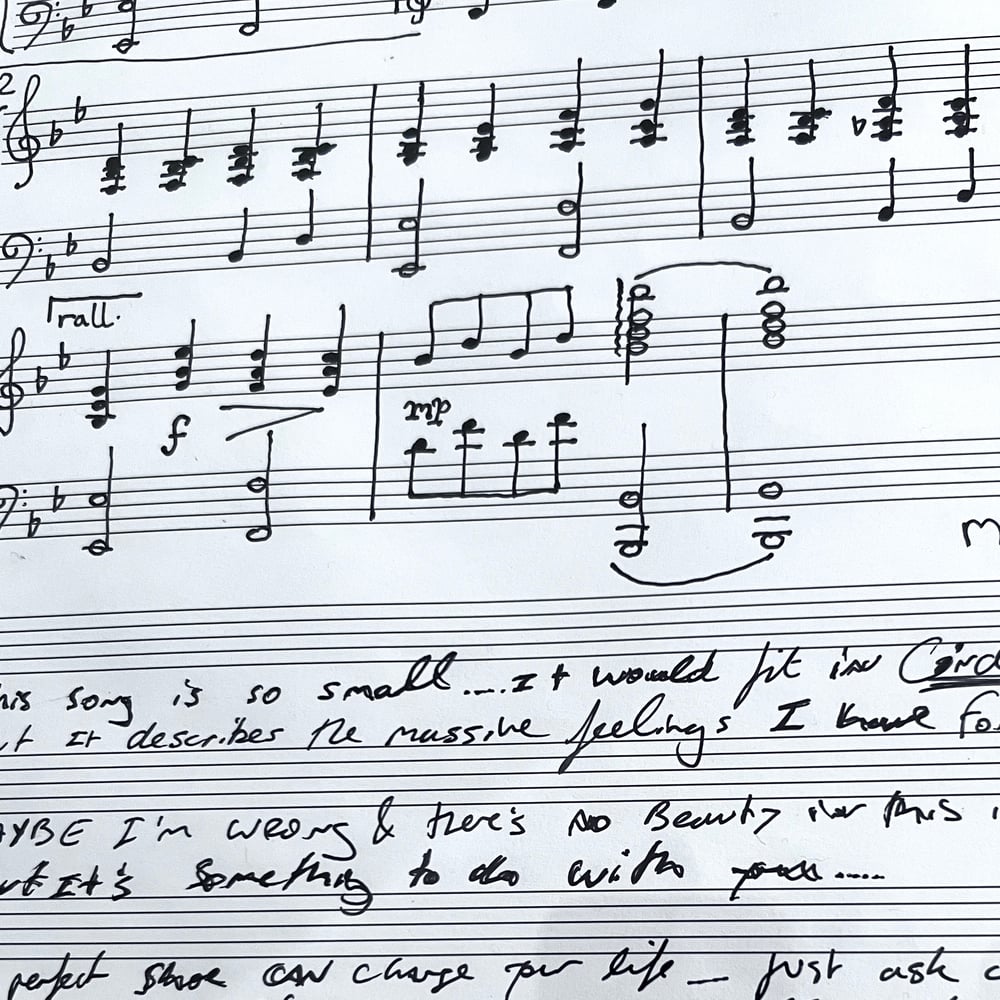 2
rall.
f
his song is so small....It would fit in Cind
ut It describes the massive feelings I have fo
AYBE I'm wrong & there's no Beauty in this
ut It's something to do with you.....
perfect Shoe CAN change your life _ just ask c